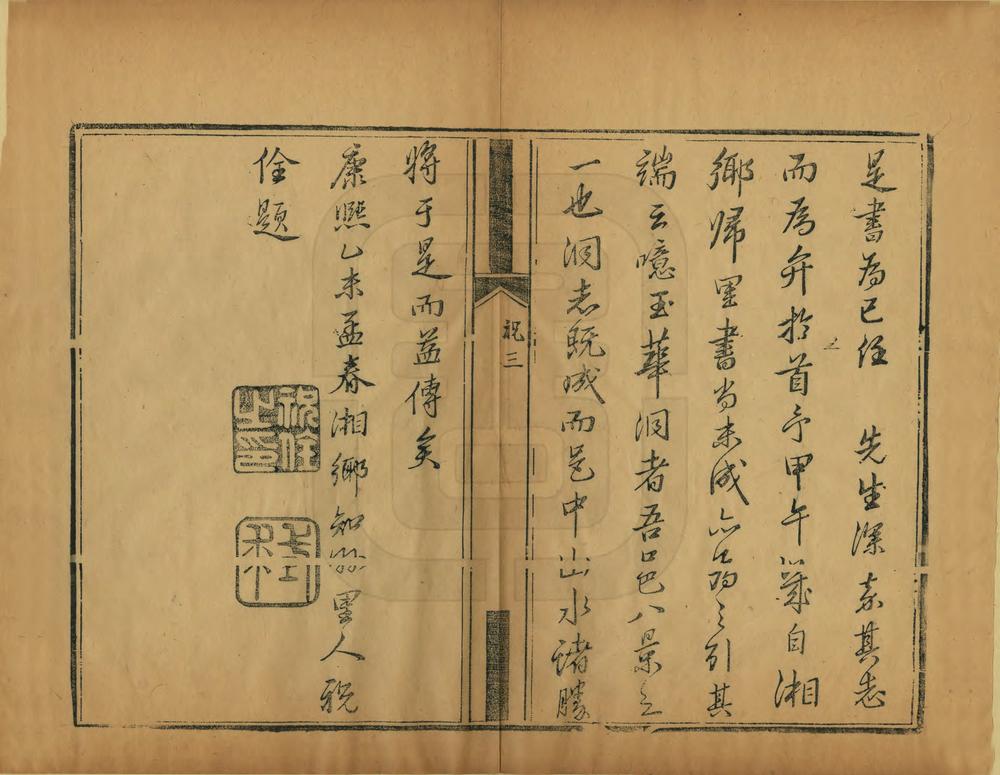 是書為已任　先生深嘉其志
而為弁於首予甲午歲自湘
鄉歸里書尚未成亦為之引其
端云噫玉華洞者吾邑八景之
一也洞志既成而邑中山水諸勝
祝三
將于是而益傳矣
康熙乙未孟春湘鄉知縣里人祝
佺題
祝佺之印